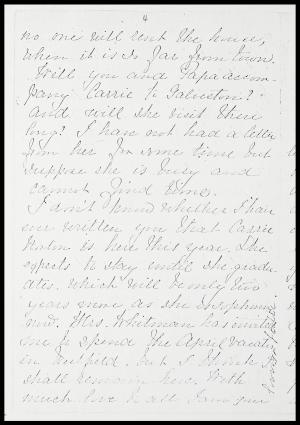 4
no one will rent the house,
when it is so far from town.
Will you and Papa accom-
pany Carrie to Galveston?
and will she visit there
long? I have not had a letter
from her for some time but
suppose she is busy and
cannot find time.
I don't know whether I have
ever written you that Carrie
is here this year. She
expects to stay until she gradu-
ates. which will be only two
years more, as she is sophomore
now. Mrs. Whitman has invited
me to spend the April vacation
in but I think I
shall remain here. With
much love to all I am your